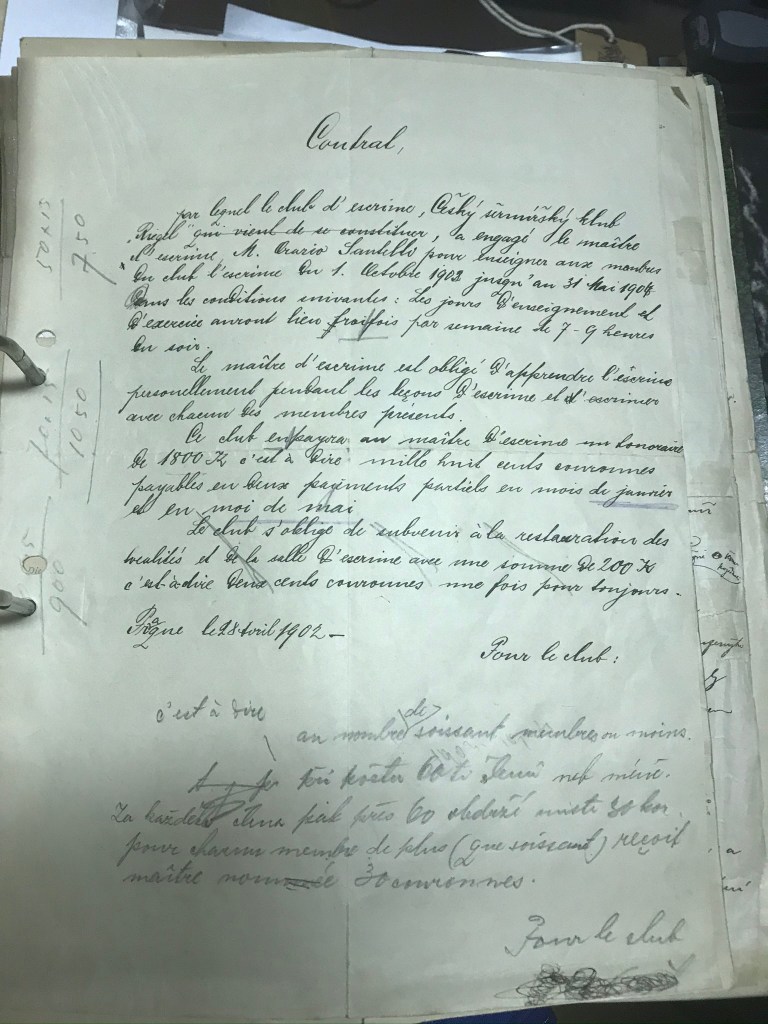 Contrat,
par lequel le club d'escrime, Český šermířský klub
„Riegel" qui vient de se constituer, a engagé le maître
d'escrime, M. Orazio Santelli pour enseigner aux membres
du club l'escrime du 1. Octobre 1902 jusqu'au 31 Mai 1904
dans les conditions suivantes: Les jours d'enseignement et
d'exercice auront lieu froifois par semaine de 7-9 heures
du soir.
Le maître d'escrime est obligé d'apprendre l'éscrime
personellement pendant les leçons d'escrime et d'escrimer
avec chacun des membres présents.
Le club en payera au maître d'escrime un honoraire
de 1800 K c'est à dire mille huit cents couronnes
payables en deux paiments partiels en mois de janvier
et en moi de mai
Le club s'oblige de subvenir à la restauration des
localités et de la salle d'escrime avec une somme de 200 K
c'est-à-dire deux cents couronnes une fois pour toujours.
Prague le 28 Avril 1902 –
Pour le club:
c'est à dire
au nombre de soissant membres ou moins.
při počtu 60ti členů neb méně.
Za každého člena pak přes 60 obdrží mistr 30 kor.
pour chacun membre de plus (que soissant) reçoit
maître 30 couronnes.
Pour le club
50 x 15
750
70 x 15
1050
900